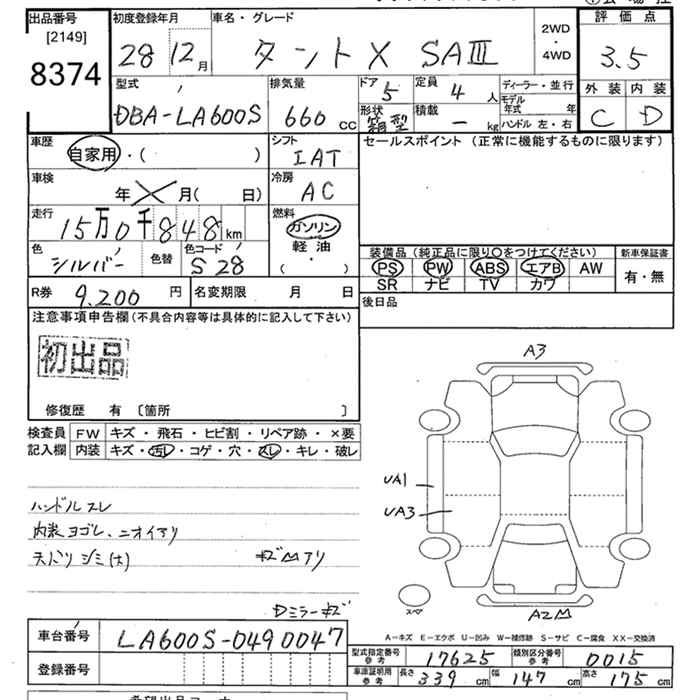 出品番号
[2149]
8374
初度登録年月
28 12月
車名・グレード
タント X SAIII
2WD
・
4WD
評価点
3.5
外装 内装
C D
型式
DBA-LA600S
排気量
660 cc
ドア
5
形状
箱型
定員
4 人
積載
- kg
ディーラー・並行
モデル年式 年
ハンドル 左・右
車歴
自家用・( )
シフト
IAT
セールスポイント (正常に機能するものに限ります)
車検
年 月( 日)
冷房
AC
走行
15万0千848km
燃料
ガソリン
軽油
( ・ )
色
シルバー
色替
色コード
S28
装備品 (純正品に限り○をつけてください)
PS PW ABS エアB AW
SR ナビ TV カワ
新車保証書
有・無
R券 9,200 円
名変期限 月 日
後日品
注意事項申告欄 (不具合内容等は具体的に記入して下さい)
初出品
修復歴 有 〔箇所 〕
検査員記入欄
FW キズ・飛石・ヒビ割・リペア跡・×要
内装 キズ・汚レ・コゲ・穴・スレ・キレ・破レ
ハンドルスレ
内装ヨゴレ、ニオイアリ
天バリシミ(大)
キズMアリ
Dミラーキズ
A3
UA1
UA3
スペア
A2M
A-キズ E-エクボ U-凹み W-補修跡 S-サビ C-腐食 XX-交換済
車台番号 LA600S-0490047
登録番号
型式指定番号 参考 17625
類別区分番号 参考 0015
車庫証明用 参考 長さ 339 cm 幅 147 cm 高さ 175 cm